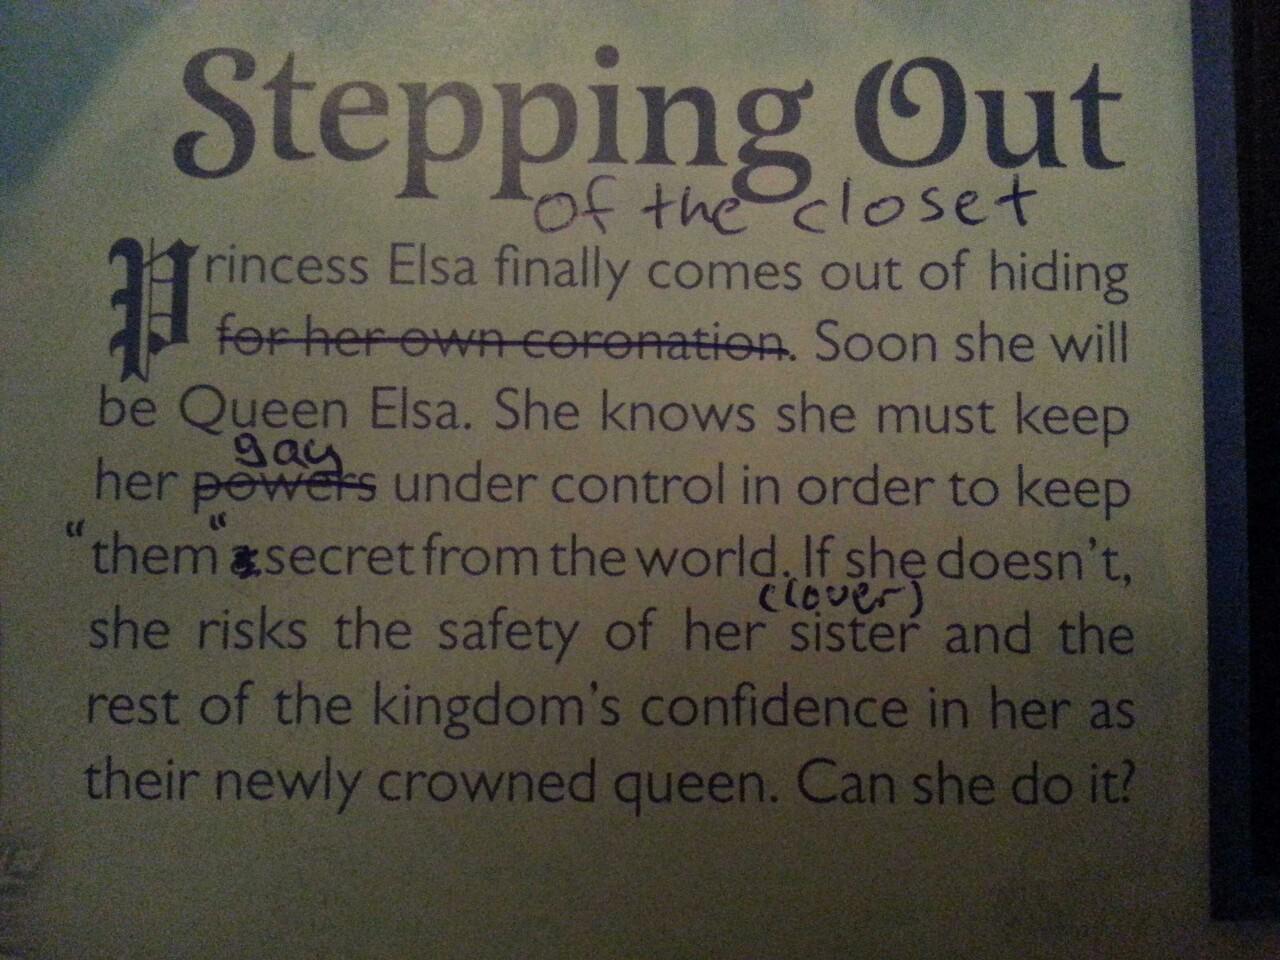 Stepping Out
of the closet
Princess Elsa finally comes out of hiding
for her own coronation. Soon she will
be Queen Elsa. She knows she must keep
gay
her powers under control in order to keep
"them" secret from the world. If she doesn't,
(lover)
she risks the safety of her sister and the
rest of the kingdom's confidence in her as
their newly crowned queen. Can she do it?